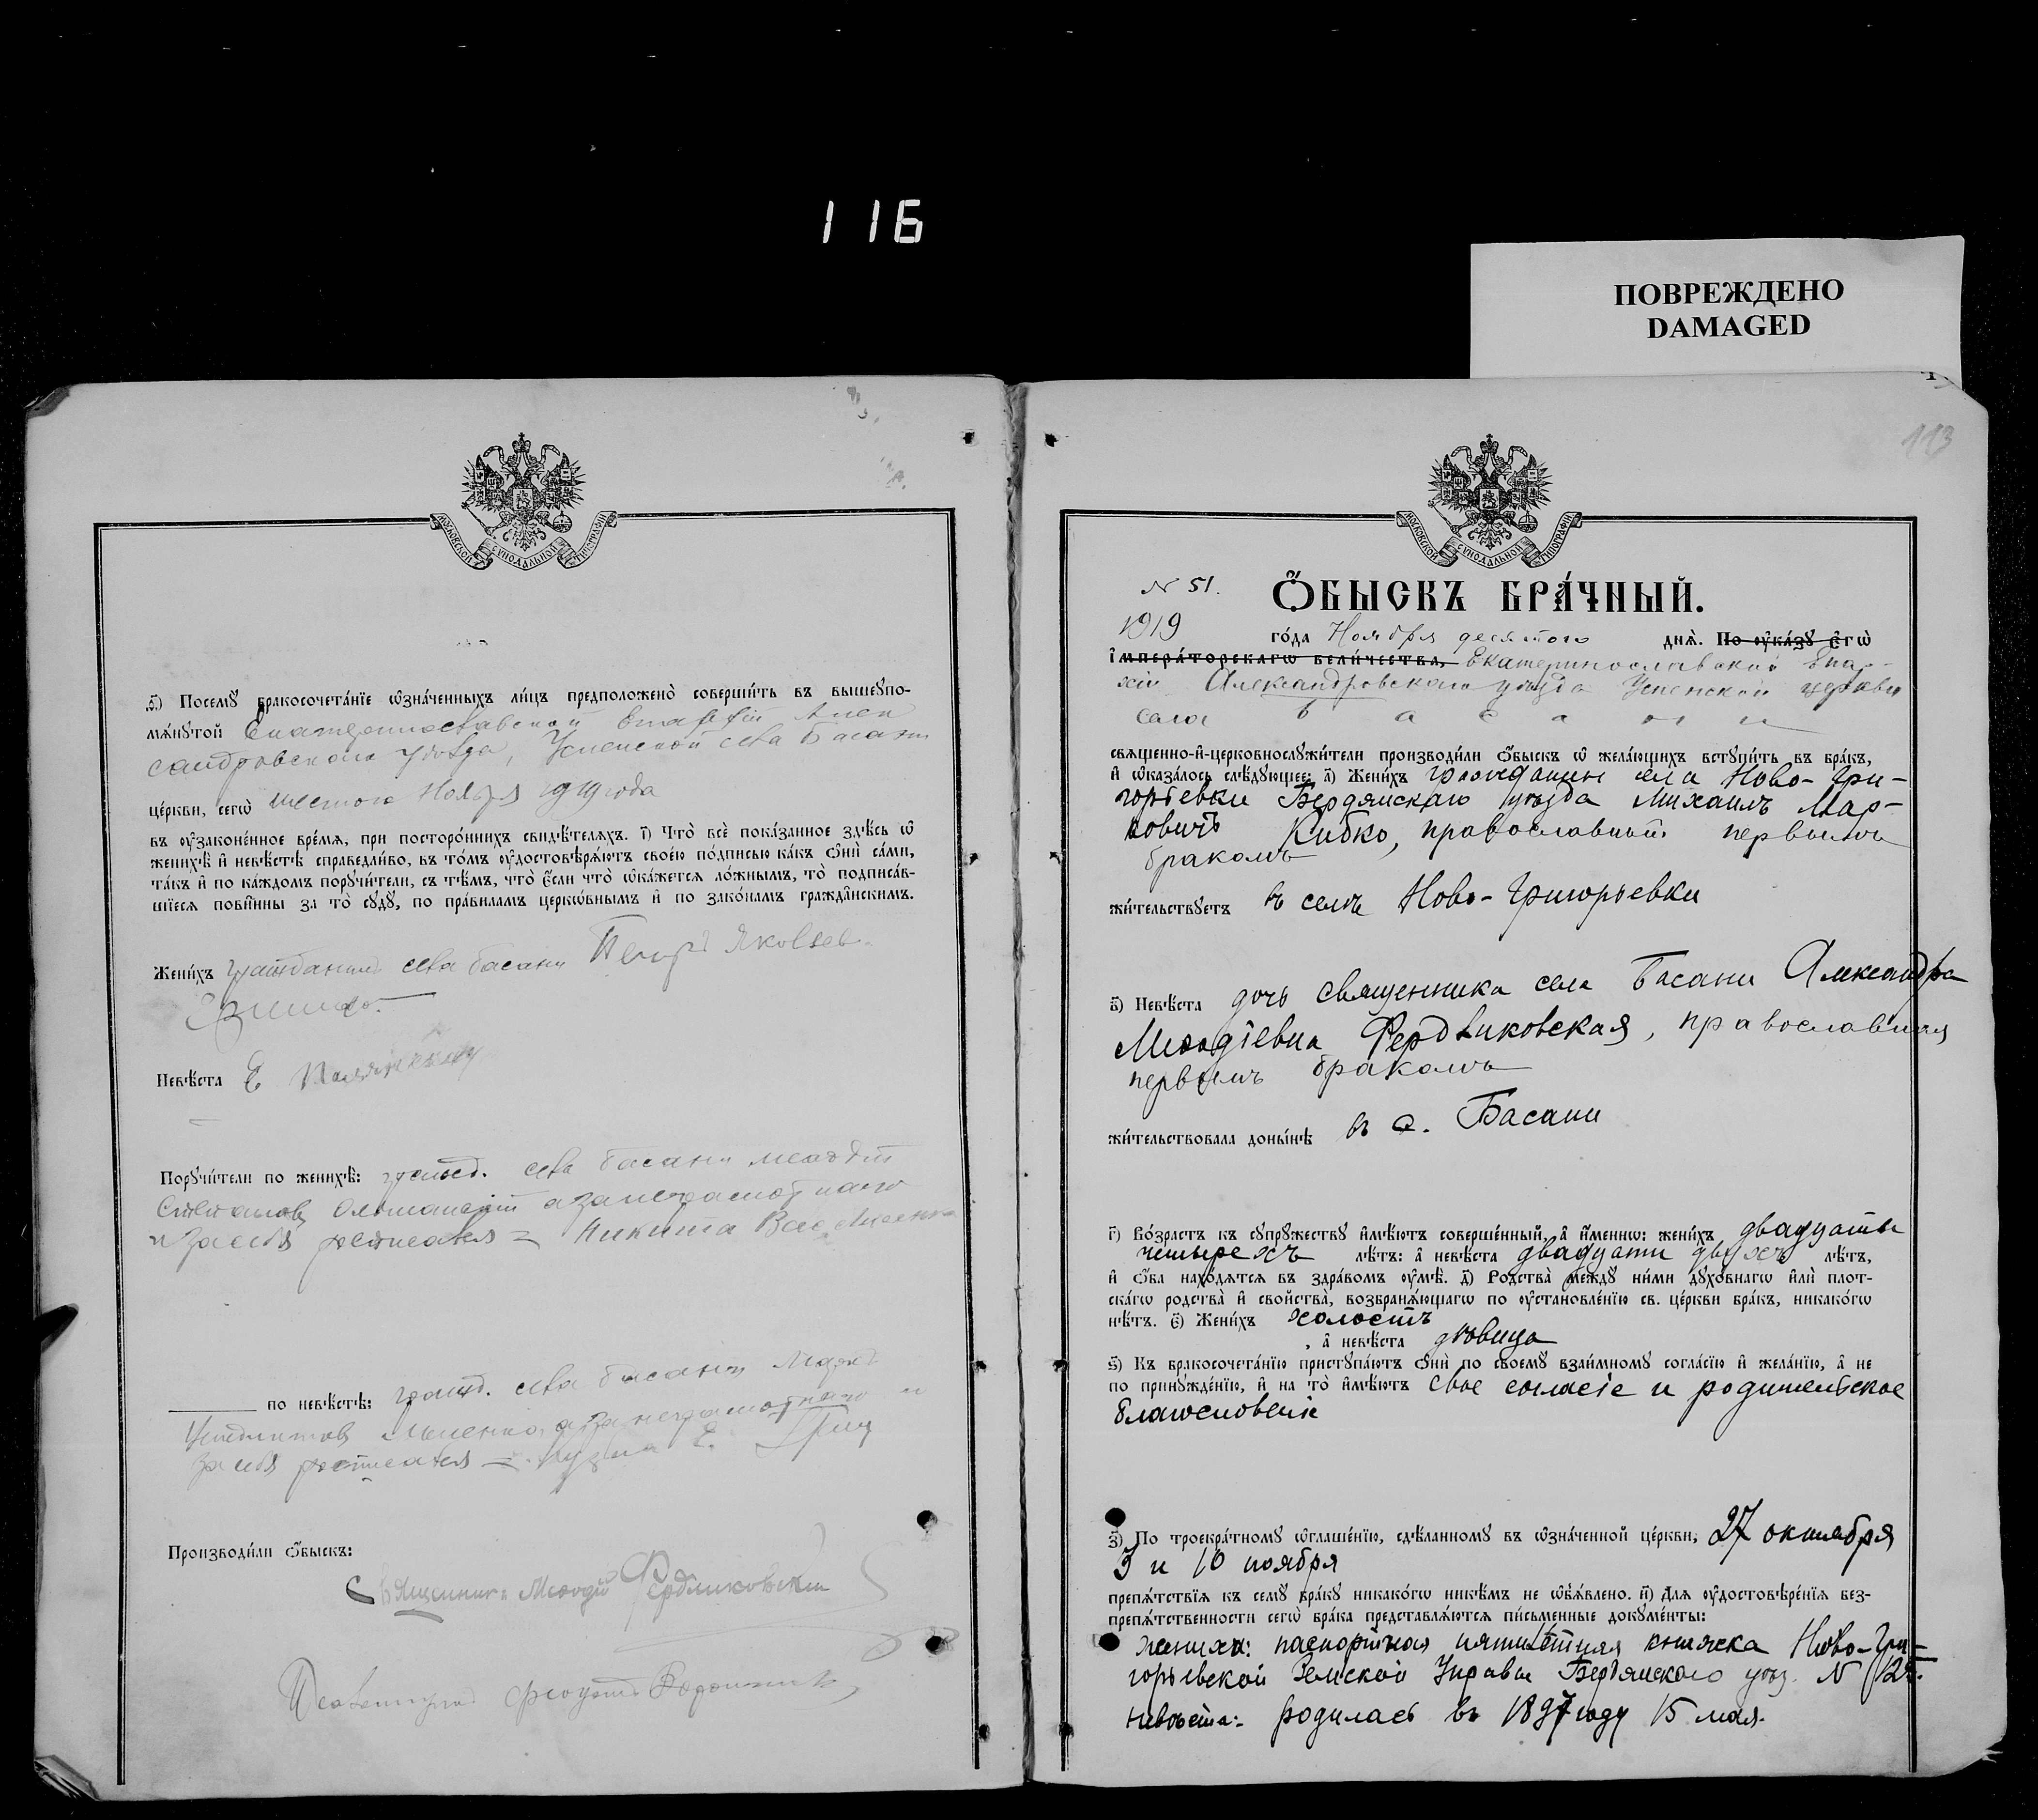 116
ПОВРЕЖДЕНО
DAMAGED
МОСКОВСКОЙ СѴНОДАЛЬНОЙ ТИПОГРАФІИ
ѳ҃) Посемꙋ̀ бракосочета́нїе ѡ҆зна́ченныхъ ли́цъ предположено̀ соверши́ть въ вышеꙋпо-
мѧ́нꙋтой Екатеринославской Епархіи Алек
сандровскаго уѣзда, Успенской села Басани
це́ркви, сегѡ̀ шестого Ноября 1919 года
въ ѹ҆зако́ненное вре́мѧ, при посторо́ннихъ свидѣ́телѧхъ. і҃) Что̀ всѐ пока́занное здѣ́сь ѡ҆
женихѣ̀ и҆ невѣ́стѣ справедли́во, въ то́мъ ѹ҆достовѣрѧ́ютъ свое́ю по́дписью ка́къ ѻ҆нѝ са́ми,
та́къ и҆ по ка́ждомъ порꙋчи́тели, съ тѣ́мъ, что̀ є҆́сли что̀ ѡ҆ка́жетсѧ ло́жнымъ, то̀ подписа́в-
шїесѧ пови́нны за то̀ сꙋдꙋ̀, по пра́виламъ церко́внымъ и҆ по зако́намъ гражда́нскимъ.
Жени́хъ гражданинъ села Басани Петръ Яковлев.
Невѣ́ста Е
Порꙋчи́тели по женихѣ̀: гражд. села Басани Меѳодій
Степановъ а за неграмотнаго
и за себя росписался = Никита Вас.
по невѣ́стѣ: гражд. села Басани Марк
а за неграмотнаго и
за себя росписался = Кузма Е.
Производи́ли ѻ҆́быскъ:
Священникъ Меѳодій Фердликовскій
N 51.
Ѻ҆́БЫСКЪ БРА́ЧНЫЙ.
1919 го́да Ноября десятого днѧ̀. По ѹ҆ка́зꙋ є҆гѡ̀
і҆мпера́торскагѡ вели́чества, Екатеринославской Епар-
хіи Александровскаго уѣзда Успенской церкви
села Басани
свѧще́нно-и҆-церковнослꙋжи́тели производи́ли ѻ҆́быскъ ѡ҆ жела́ющихъ встꙋпи́ть въ бра́къ,
и҆ ѡ҆каза́лось слѣ́дꙋющее: а҃) Жени́хъ гражданин села Ново-Гри-
горьевки Бердянскаго уѣзда Михаилъ Мар-
ковичъ Кибко, православный первымъ
бракомъ
жи́тельствꙋетъ въ селѣ Ново-Григорьевки
в҃) Невѣ́ста дочь священника села Басани Александра
Меѳодіевна Фердликовская, православная
первымъ бракомъ
жи́тельствовала доны́нѣ въ с. Басани
г҃) Во́зрастъ къ сꙋпрꙋ́жествꙋ и҆мѣ́ютъ соверше́нный, а҆ и҆́меннѡ: жени́хъ двадцати
четырехъ лѣ́тъ: а҆ невѣ́ста двадцати двухъ лѣ́тъ,
и҆ ѻ҆́ба нахо́дѧтсѧ въ здра́вомъ ѹ҆мѣ̀. д҃) Родства̀ ме́ждꙋ ни́ми дꙋхо́внагѡ и҆лѝ плот-
ска́гѡ родства̀ и҆ свойства̀, возбранѧ́ющагѡ по ѹ҆становле́нїю св. це́ркви бра́къ, никако́гѡ
нѣ́тъ. є҃) Жени́хъ холостъ
, а҆ невѣ́ста дѣвица
ѕ҃) Къ бракосочета́нїю пристꙋпа́ютъ ѻ҆нѝ по своемꙋ̀ взаи́мномꙋ согла́сїю и҆ жела́нїю, а҆ не
по принꙋжде́нїю, и҆ на то̀ и҆мѣ́ютъ свое согласіе и родительское
благословеніе
з҃) По троекра́тномꙋ ѡ҆глаше́нїю, сдѣ́ланномꙋ въ ѡ҆зна́ченной це́ркви, 27 октября
3 и 10 ноября
препѧ́тствїѧ къ семꙋ̀ бра́кꙋ никако́гѡ никѣ́мъ не ѡ҆б̾ѧ́влено. и҃) Длѧ ѹ҆достовѣре́нїѧ без-
препѧ́тственности сегѡ̀ бра́ка представлѧ́ютсѧ пи́сьменные докꙋме́нты:
жениха: паспортная пятилѣтняя книжка Ново-Гри-
горьевской Земской Управы Бердянскаго уѣз. N
невѣста: родилась въ 1897 году 15 мая.
113